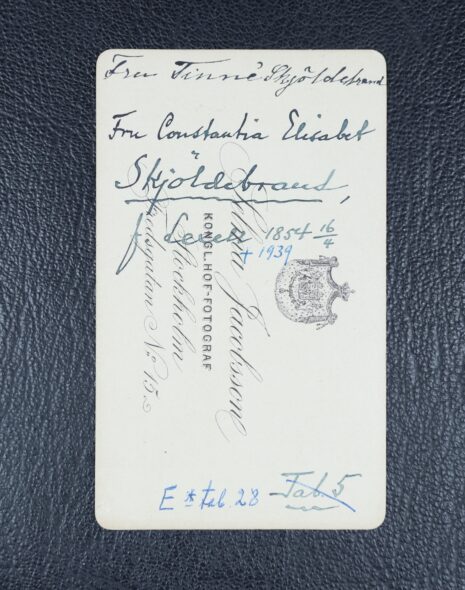 Fru Tinné Skjöldebrand
Fru Constantia Elisabet
Skjöldebrand,
f. 1854 16/4
+ 1939
Selma Jacobsson
KONGL. HOF-FOTOGRAF
Stockholm
Fredsgatan No 15
E * tab. 28 Tab 5